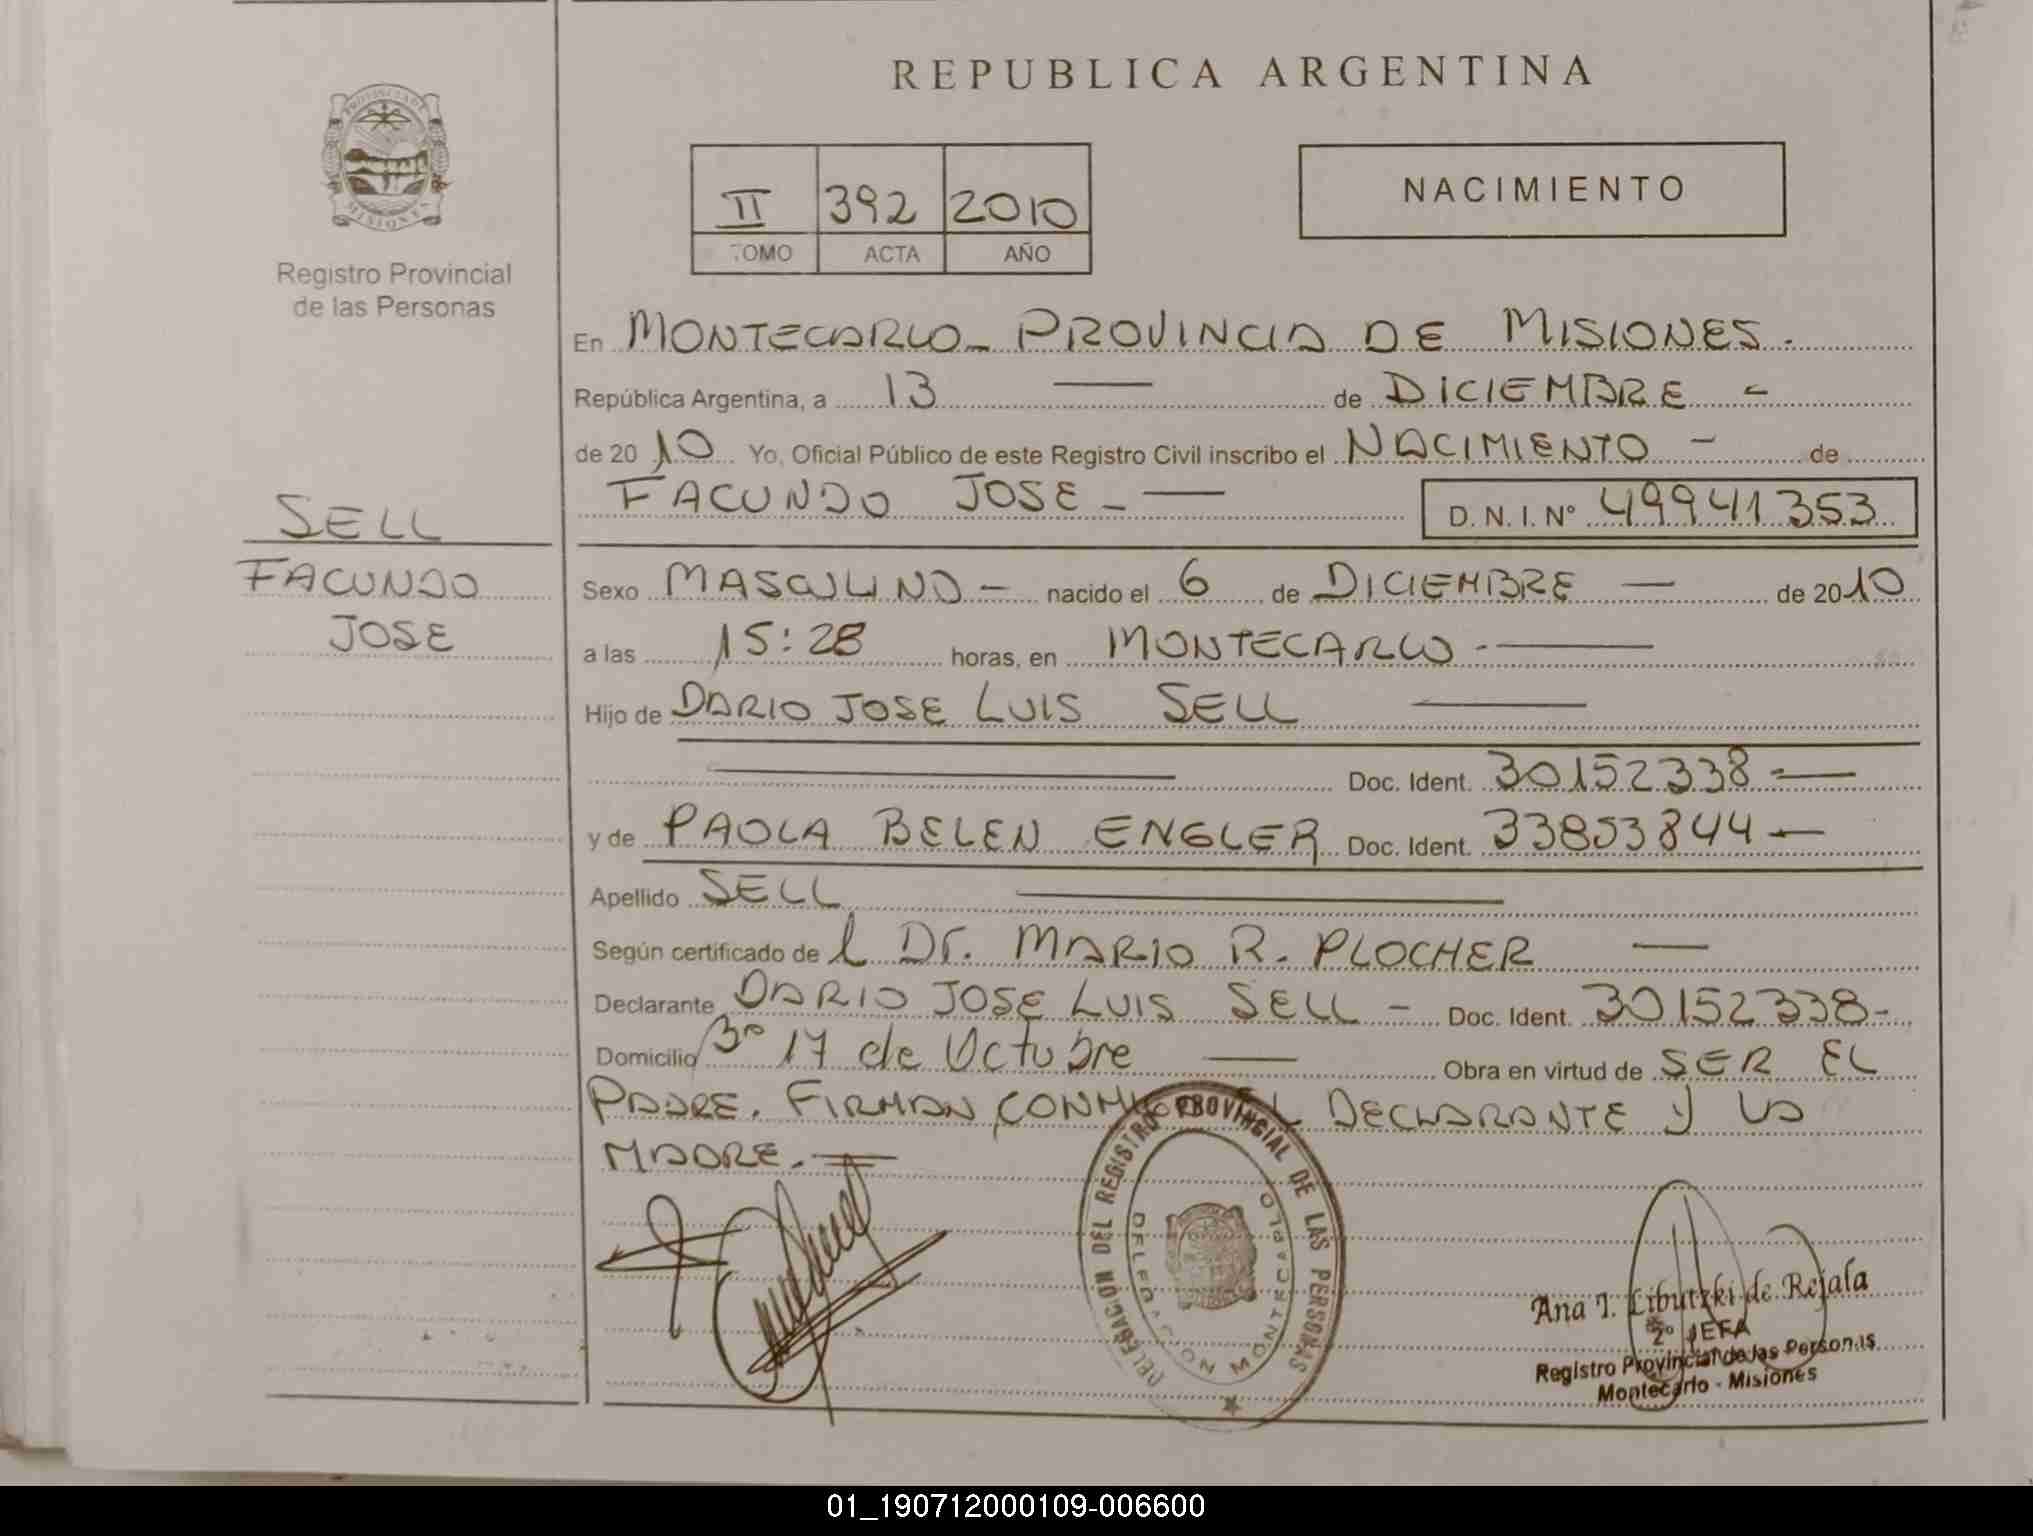 REPUBLICA ARGENTINA
PROVINCIA DE
MISIONES
Registro Provincial
de las Personas
II 392 2010
TOMO ACTA AÑO
NACIMIENTO
En MONTECARLO - PROVINCIA DE MISIONES.
República Argentina, a 13 — de DICIEMBRE -
de 2010 Yo, Oficial Público de este Registro Civil inscribo el NACIMIENTO - de
FACUNDO JOSE - — D. N. I. Nº 49941353
SELL
FACUNDO
JOSE
Sexo MASCULINO - nacido el 6 de DICIEMBRE — de 2010
a las 15:28 horas, en MONTECARLO - —
Hijo de DARIO JOSE LUIS SELL —
— Doc. Ident. 30152338 - —
y de PAOLA BELEN ENGLER Doc. Ident. 33853844 —
Apellido SELL —
Según certificado de l Dr. MARIO R. PLOCHER —
Declarante DARIO JOSE LUIS SELL - Doc. Ident. 30152338-
Domicilio Bº 17 de Octubre — Obra en virtud de SER EL
PADRE. FIRMAN CONMIGO EL DECLARANTE Y LA
MADRE. =
DELEGACIÓN DEL REGISTRO PROVINCIAL DE LAS PERSONAS
DELEGACION MONTECARLO
Ana I. Libutzki de Rejala
2º JEFA
Registro Provincial de las Personas
Montecarlo - Misiones
01_190712000109-006600